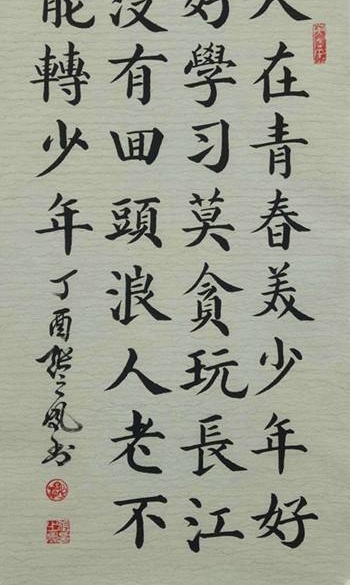 人在青春美少年好
好學习莫貪玩長江
没有回頭浪人老不
能轉少年
丁酉張之凤书